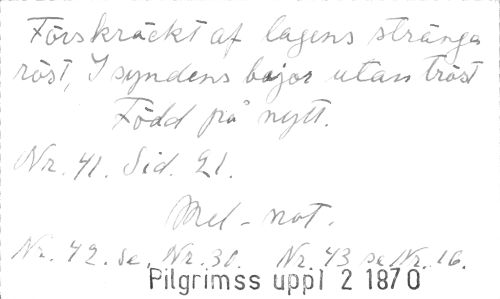 Förskräckt af lagens stränga
röst, I syndens bojor utan tröst
Född på nytt.
Nr. 41. Sid. 21.
Mel-not.
Nr. 42. se, Nr. 30. Nr. 43 se Nr. 16.
Pilgrimss uppl 2 1870